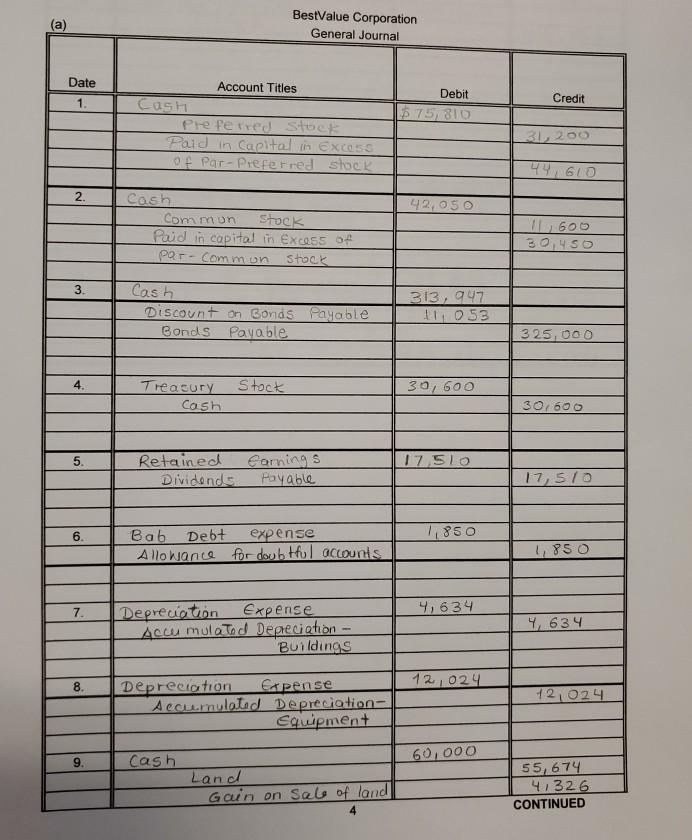 (a)
BestValue Corporation
General Journal
Date Account Titles Debit Credit
1. Cash $75,810
Preferred Stock 31,200
Paid in Capital in Excess
of Par-Preferred stock 44,610
2. Cash 42,050
Common Stock 11,600
Paid in capital in Excess of 30,450
Par-Common Stock
3. Cash 313,947
Discount on Bonds Payable 11,053
Bonds Payable 325,000
4. Treasury Stock 30,600
Cash 30,600
5. Retained Earnings 17,510
Dividends Payable 17,510
6. Bab Debt expense 1,850
Allowance for doubtful accounts 1,850
7. Depreciation Expense 4,634
Accumulated Depreciation- 4,634
Buildings
8. Depreciation Expense 12,024
Accumulated Depreciation- 12,024
Equipment
9. Cash 60,000
Land 55,674
Gain on Sale of land 4,326
4
CONTINUED